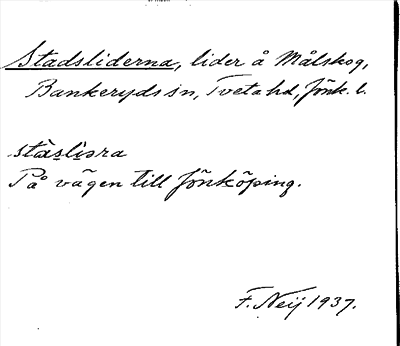 Stadsliderna, lider å Målskog,
Bankeryds sn, Tveta hd, Jönk. l.
stàs̱lìsra
På vägen till Jönköping.
F. Neij 1937.